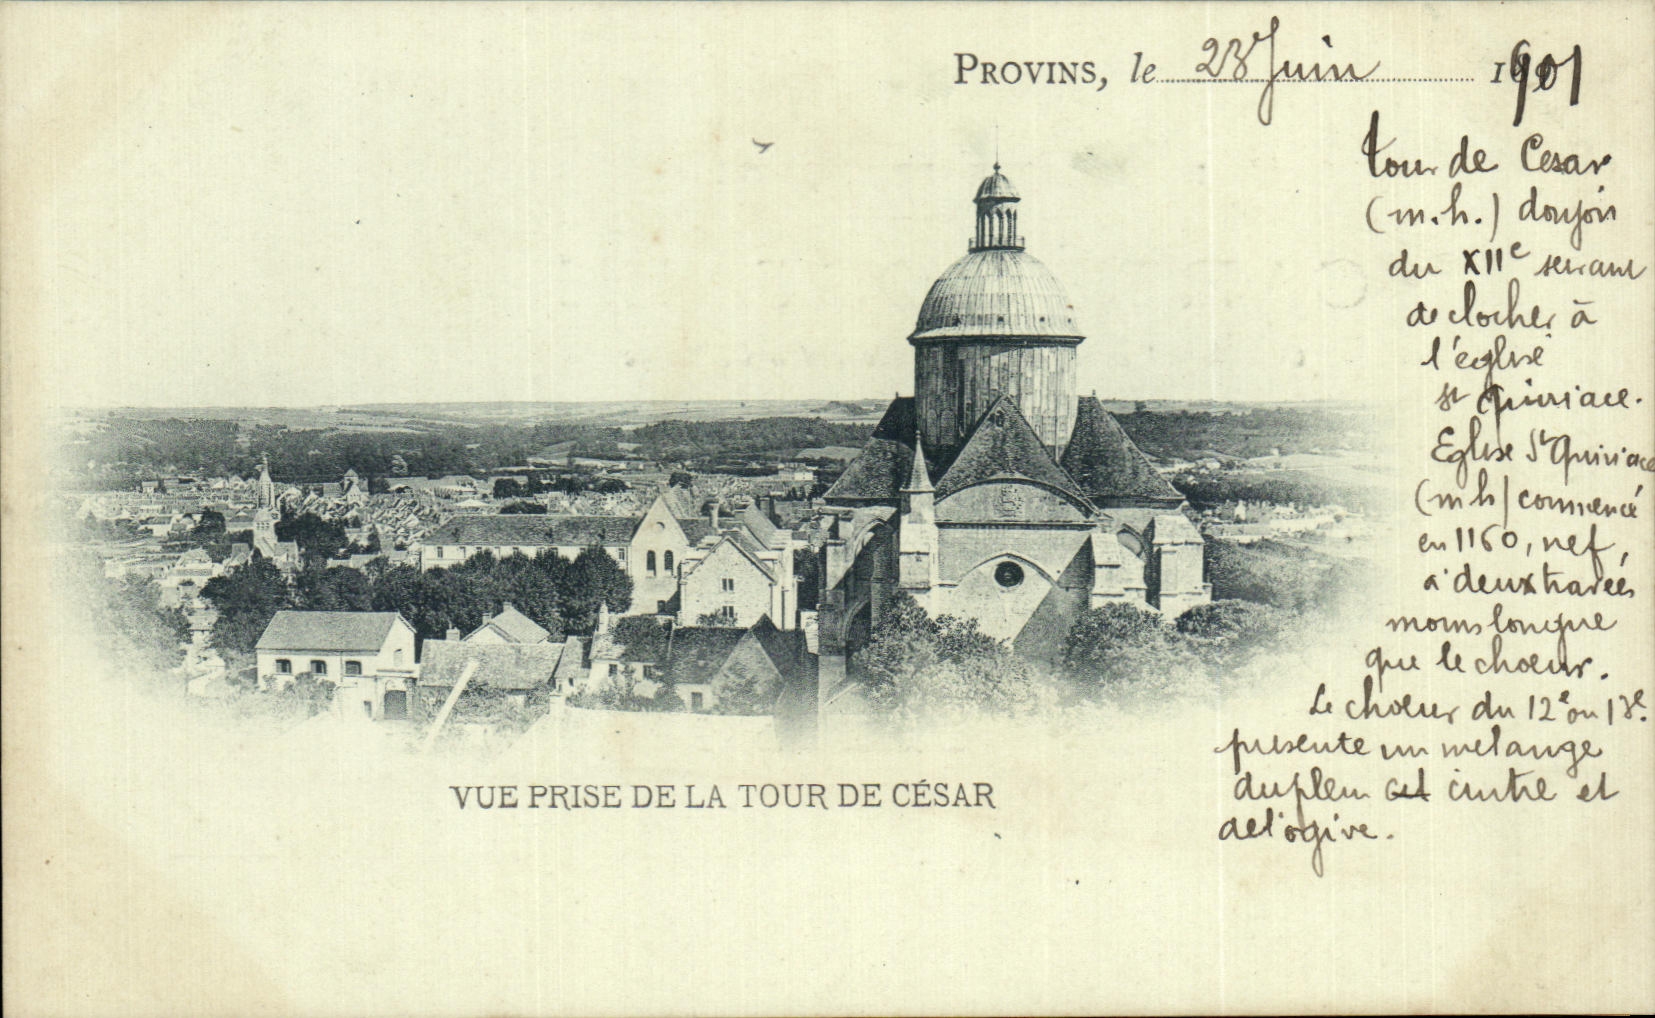 PROVINS, le 23 Juin 1901
tour de Cesar
(m.h.) donjon
du XIIe servant
de clocher à
l'église
st Quiriace.
Eglise St Quiriace
(m h) commencé
en 1160, nef,
a deux travées
moins longue
que le choeur.
Le choeur du 12e ou 13e.
presente un melange
du plein cintre et
de l'ogive.
VUE PRISE DE LA TOUR DE CÉSAR